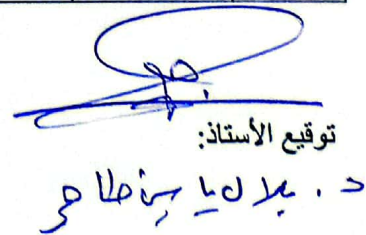 توقيع الأستاذ:
د. بلال ياسين طاهر